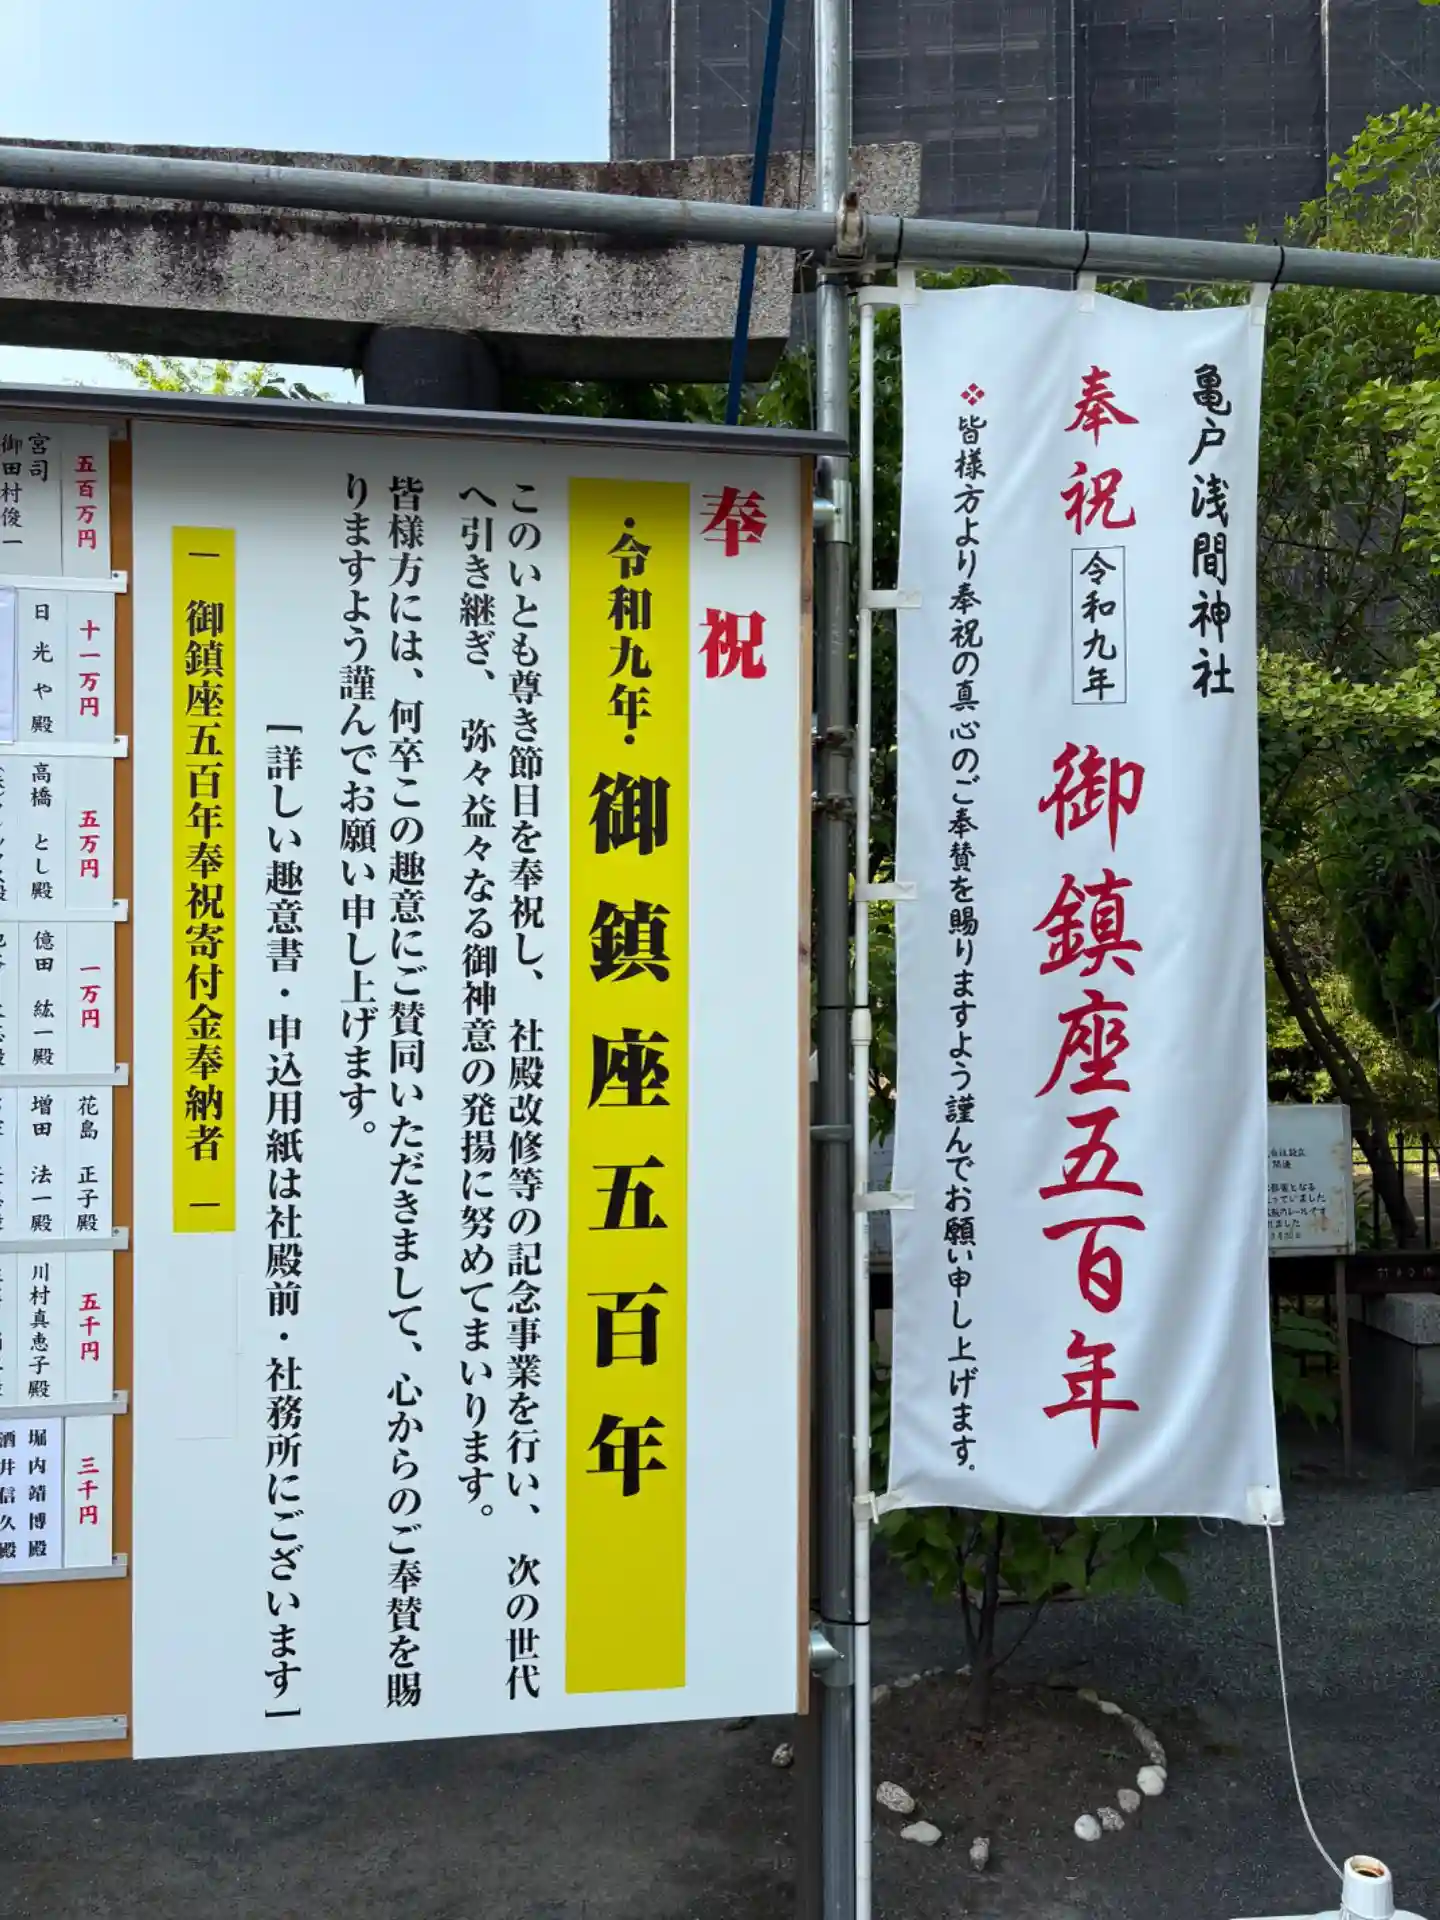 亀戸浅間神社
奉祝 令和九年 御鎮座五百年
❖皆様方より奉祝の真心のご奉賛を賜りますよう謹んでお願い申し上げます。
奉祝
・令和九年・御鎮座五百年
このいとも尊き節目を奉祝し、社殿改修等の記念事業を行い、次の世代
へ引き継ぎ、弥々益々なる御神意の発揚に努めてまいります。
皆様方には、何卒この趣意にご賛同いただきまして、心からのご奉賛を賜
りますよう謹んでお願い申し上げます。
[詳しい趣意書・申込用紙は社殿前・社務所にございます]
― 御鎮座五百年奉祝寄付金奉納者 ―
五百万円
宮司
御田村俊一
十一万円
日光や殿
五万円
高橋 とし殿
一万円
億田 紘一殿
花島 正子殿
増田 法一殿
五千円
川村真恵子殿
三千円
堀内靖博殿
酒井信久殿